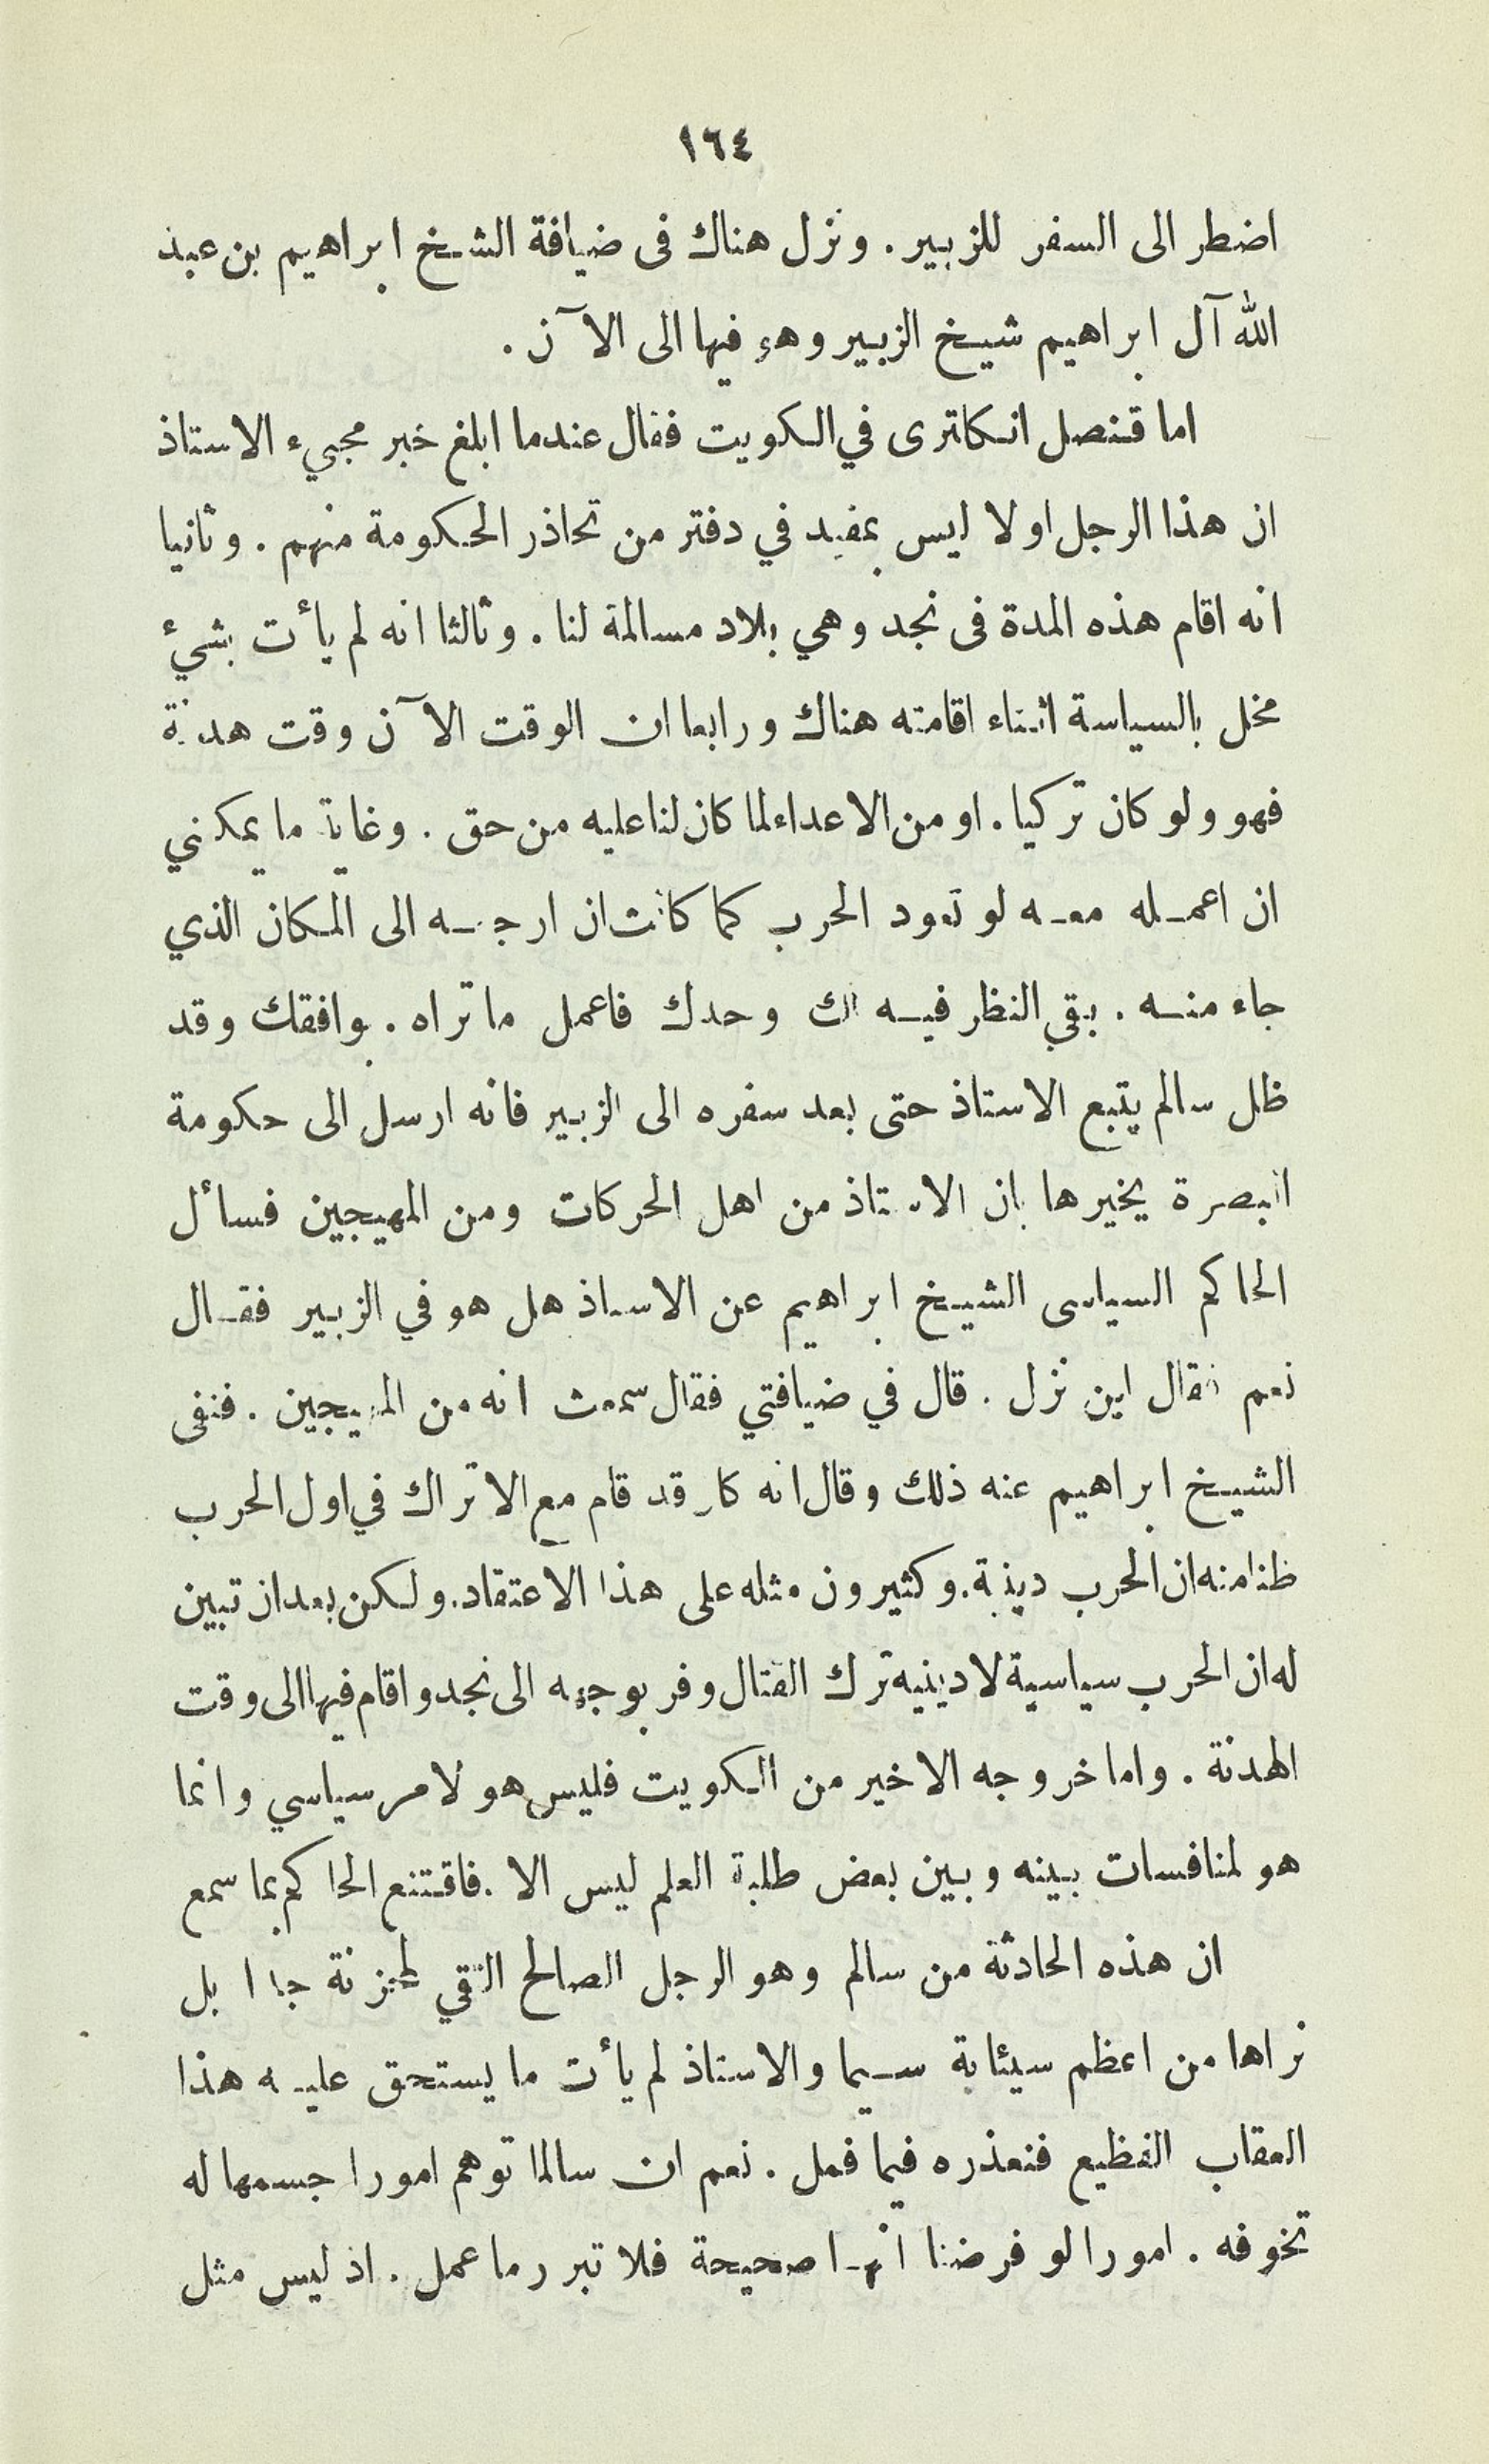 ١٦٤
اضطر الى السفر للزبير . ونزل هناك فى ضيافة الشيخ ابراهيم بن عبد
الله آل ابراهيم شيخ الزبير وهو فيها الى الآن .
اما قنصل انكلترى في الكويت فقال عندما ابلغ خبر مجيء الاستاذ
ان هذا الرجل اولا ليس بمقيد في دفتر من تحاذر الحكومة منهم . وثانيا
انه اقام هذه المدة فى نجد وهي بلاد مسالمة لنا . وثالثا انه لم يأت بشئ
مخل بالسياسة اثناء اقامته هناك ورابعا ان الوقت الآن وقت هدنة
فهو ولو كان تركيا . او من الاعداء لما كان لنا عليه من حق . وغاية ما يمكنني
ان اعمله معه لو تعود الحرب كما كانت ان ارجعه الى المكان الذي
جاء منه . بقي النظر فيه لك وحدك فاعمل ما تراه . بوافقك وقد
ظل سالم يتبع الاستاذ حتى بعد سفره الى الزبير فانه ارسل الى حكومة
البصرة يخبرها بان الاستاذ من اهل الحركات ومن المهيجين فسأل
الحاكم السياسى الشيخ ابراهيم عن الاستاذ هل هو في الزبير فقال
نعم فقال اين نزل . قال في ضيافتي فقال سمعت انه من المهيجين . فنفى
الشيخ ابراهيم عنه ذلك وقال انه كان قد قام مع الاتراك في اول الحرب
ظنا منه ان الحرب دينية . وكثيرون مثله على هذا الاعتقاد . ولكن بعد ان تبين
له ان الحرب سياسية لا دينيه ترك القتال وفر بوجهه الى نجد واقام فيها الى وقت
الهدنة . واما خروجه الاخير من الكويت فليس هو لامر سياسي وانما
هو لمنافسات بينه وبين بعض طلبة العلم ليس الا . فاقتنع الحاكم بما سمع
ان هذه الحادثة من سالم وهو الرجل الصالح التقي لمحزنة جدا بل
نراها من اعظم سيئاته سيما والاستاذ لم يأت ما يستحق عليه هذا
العقاب الفظيع فنعذره فيما فعل . نعم ان سالما توهم امورا جسمها له
تخوفه . امورا لو فرضنا انها صحيحة فلا تبرر ما عمل . اذ ليس مثل